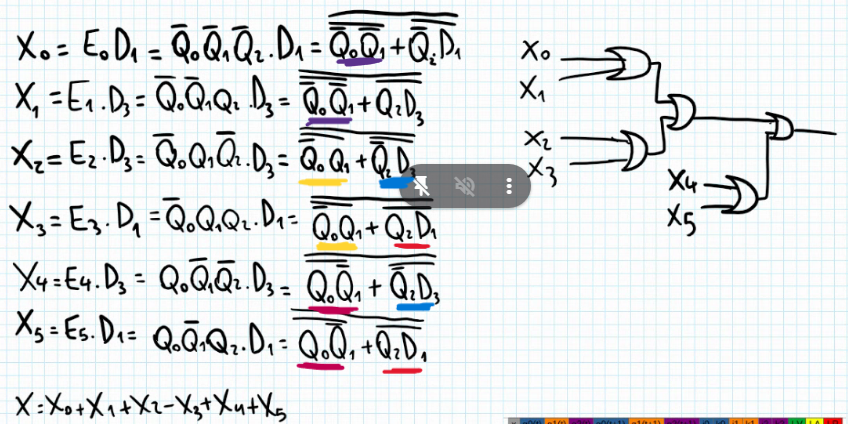 X₀ = E₀D₁ = Q̅₀Q̅₁Q̅₂.D₁ = \overline{\overline{Q̅₀Q̅₁} + \overline{Q̅₂D₁}}
X₁ = E₁.D₃ = Q̅₀Q̅₁Q₂.D₃ = \overline{\overline{Q̅₀Q̅₁} + \overline{Q₂D₃}}
X₂ = E₂.D₃ = Q̅₀Q₁Q̅₂.D₃ = \overline{\overline{Q̅₀Q₁} + \overline{Q̅₂D₃}}
X₃ = E₃.D₁ = Q̅₀Q₁Q₂.D₁ = \overline{\overline{Q̅₀Q₁} + \overline{Q₂D₁}}
X₄ = E₄.D₃ = Q₀Q̅₁Q̅₂.D₃ = \overline{\overline{Q₀Q̅₁} + \overline{Q̅₂D₃}}
X₅ = E₅.D₁ = Q₀Q̅₁Q₂.D₁ = \overline{\overline{Q₀Q̅₁} + \overline{Q₂D₁}}
X = X₀+X₁+X₂-X₃+X₄+X₅
X₀
X₁
X₂
X₃
X₄
X₅